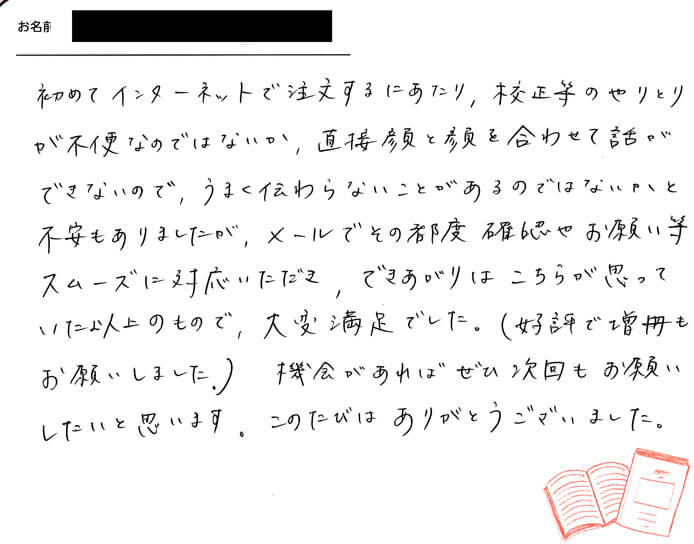 お名前
初めてインターネットで注文するにあたり, 校正等のやりとり
が不便なのではないか, 直接顔と顔を合わせて話が
できないので, うまく伝わらないことがあるのではないかと
不安もありましたが, メールでその都度 確認や お願い等
スムーズに対応いただき, できあがりは こちらが思って
いた以上のもので, 大変満足でした。(好評で増冊も
お願いしました.) 機会があれば ぜひ 次回も お願い
したいと思います。このたびは ありがとうございました。